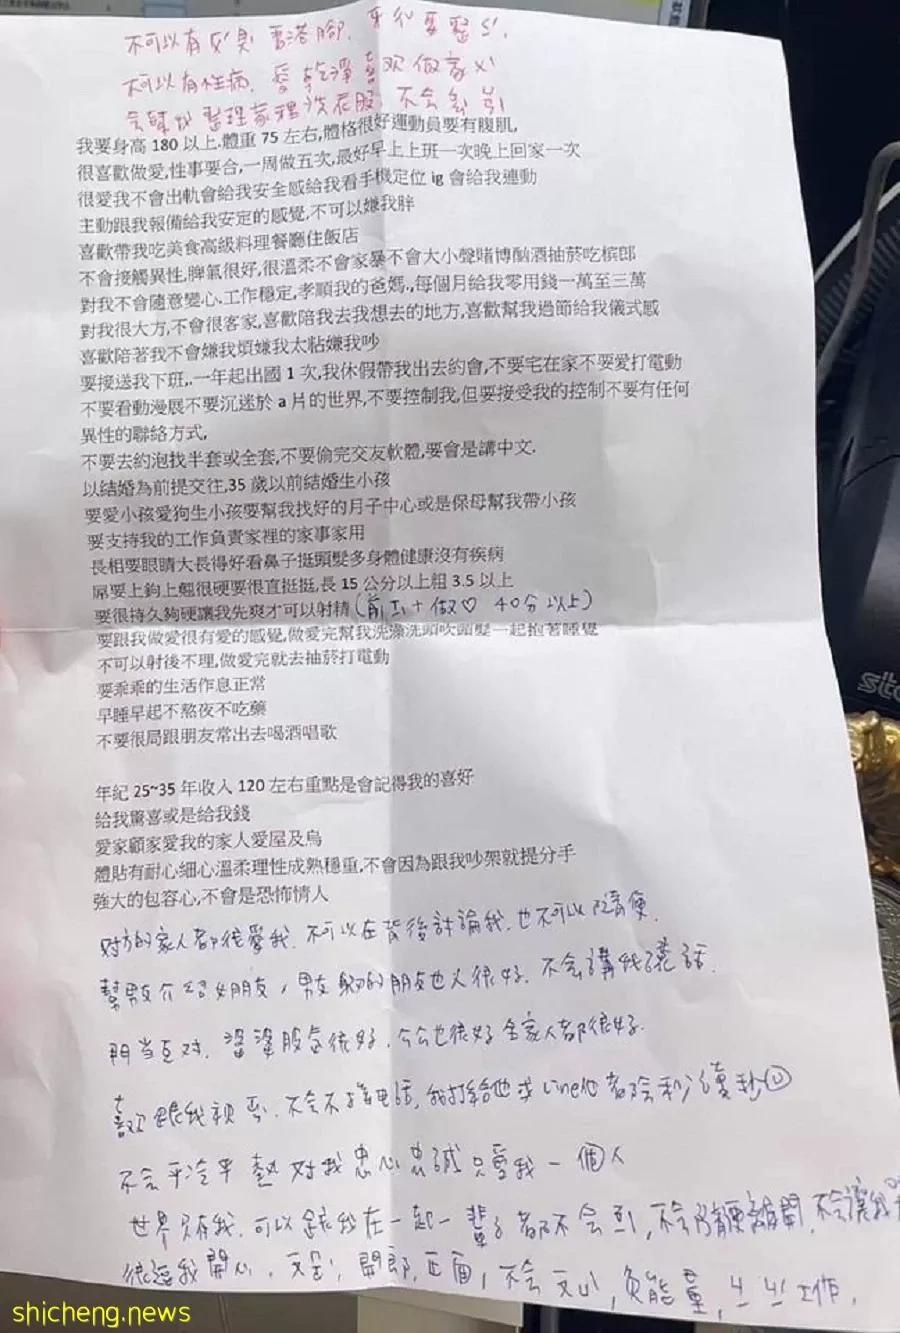 不可以有口臭 香港腳. 牙化要整ㄐ.
不可以有性病. 愛乾淨喜欢做家ㄨ
整理家裡洗衣服. 不会
我要身高 180 以上.體重 75 左右,體格很好運動員要有腹肌,
很喜歡做愛,性事要合,一周做五次,最好早上上班一次晚上回家一次
很愛我不會出軌會給我安全感給我看手機定位 ig 會給我連動
主動跟我報備給我安定的感覺,不可以嫌我胖
喜歡帶我吃美食高級料理餐廳住飯店
不會接觸異性,脾氣很好,很溫柔不會家暴不會大小聲賭博酗酒抽菸吃檳郎
對我不會隨意變心.工作穩定,孝順我的爸媽.,每個月給我零用錢一萬至三萬
對我很大方,不會很客家,喜歡陪我去我想去的地方,喜歡幫我過節給我儀式感
喜歡陪著我不會嫌我煩嫌我太粘嫌我吵
要接送我下班,.一年起出國 1 次,我休假帶我出去約會,不要宅在家不要愛打電動
不要看動漫展不要沉迷於 a 片的世界,不要控制我,但要接受我的控制不要有任何
異性的聯絡方式,
不要去約泡找半套或全套,不要偷完交友軟體,要會是講中文.
以結婚為前提交往,35 歲以前結婚生小孩
要愛小孩愛狗生小孩要幫我找好的月子中心或是保母幫我帶小孩
要支持我的工作負責家裡的家事家用
長相要眼睛大長得好看鼻子挺頭髮多身體健康沒有疾病
屌要上鉤上翹很硬要很直挺挺,長 15 公分以上粗 3.5 以上
要很持久夠硬讓我先爽才可以射精 (前ㄒㄧ + 做♡ 40分以上)
要跟我做愛很有愛的感覺,做愛完幫我洗澡洗頭吹頭髮一起抱著睡覺
不可以射後不理,做愛完就去抽菸打電動
要乖乖的生活作息正常
早睡早起不熬夜不吃藥
不要很局跟朋友常出去喝酒唱歌
年紀 25~35 年收入 120 左右重點是會記得我的喜好
給我驚喜或是給我錢
愛家顧家愛我的家人愛屋及烏
體貼有耐心細心溫柔理性成熟穩重,不會因為跟我吵架就提分手
強大的包容心,不會是恐怖情人
对方的家人都很愛我. 不可以在背後討論我. 也不可以隨便.
幫男友介紹女朋友, 男友身边的朋友也人很好. 不会講我壞話.
門当互对. 婆婆脾气很好. 公公也很好 全家人都很好.
喜欢跟我視ㄒㄩㄣ. 不会不接电話, 我打給他或Line他都会秒讀秒回
不会乎冷乎熱 对我忠心忠誠只愛我一個人
世界只有我. 可以跟我在一起一輩子都不会ㄉ, 不会隨便離開. 不会讓我
很逗我開心. 開郎, 正面, 不会 負能量, 工作.
shicheng.news